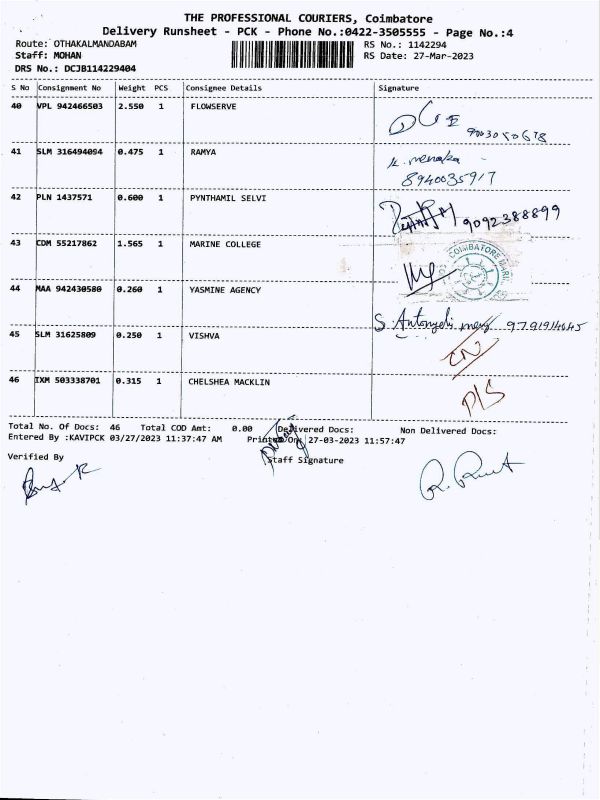 THE PROFESSIONAL COURIERS, Coimbatore
Delivery Runsheet - PCK - Phone No.:0422-3505555 - Page No.:4
Route: OTHAKALMANDABAM RS No.: 1142294
Staff: MOHAN RS Date: 27-Mar-2023
DRS No.: DCJB114229404
S No Consignment No Weight PCS Consignee Details Signature
40 VPL 942466503 2.550 1 FLOWSERVE
41 SLM 316494094 0.475 1 RAMYA
K. menaka
8940035917
42 PLN 1437571 0.600 1 PYNTHAMIL SELVI 9092388899
43 CDM 55217862 1.565 1 MARINE COLLEGE
COIMBATORE
44 MAA 942430580 0.260 1 YASMINE AGENCY
45 SLM 31625809 0.250 1 VISHVA
46 IXM 503338701 0.315 1 CHELSHEA MACKLIN
Total No. Of Docs: 46 Total COD Amt: 0.00 Delivered Docs: Non Delivered Docs:
Entered By :KAVIPCK 03/27/2023 11:37:47 AM Printed On: 27-03-2023 11:57:47
Verified By Staff Signature